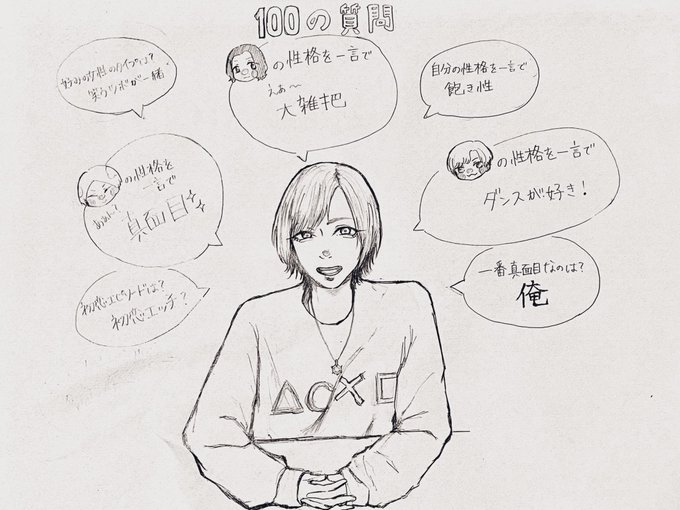 100の質問
好みの女性のタイプは?
笑うツボが一緒
の性格を一言で
えぁ〜
大雑把
自分の性格を一言で
飽き性
の性格を
一言で
真面目
の性格を一言で
ダンスが好き!
初恋エピソードは?
初恋エッチ?
一番真面目なのは?
俺
△○×□